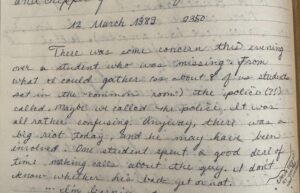 12 March 1983 0350
There was some concern this evening
over a student who was "missing". From
what I could gather (as about 8 of us students
sat in the common room) the police (?!)
called. Maybe we called the police. It was
all rather confusing. Anyway, there was a
big riot today, and he may have been
involved. One student spent a good deal of
time making calls about the guy. I don't
know whether he's back yet or not.